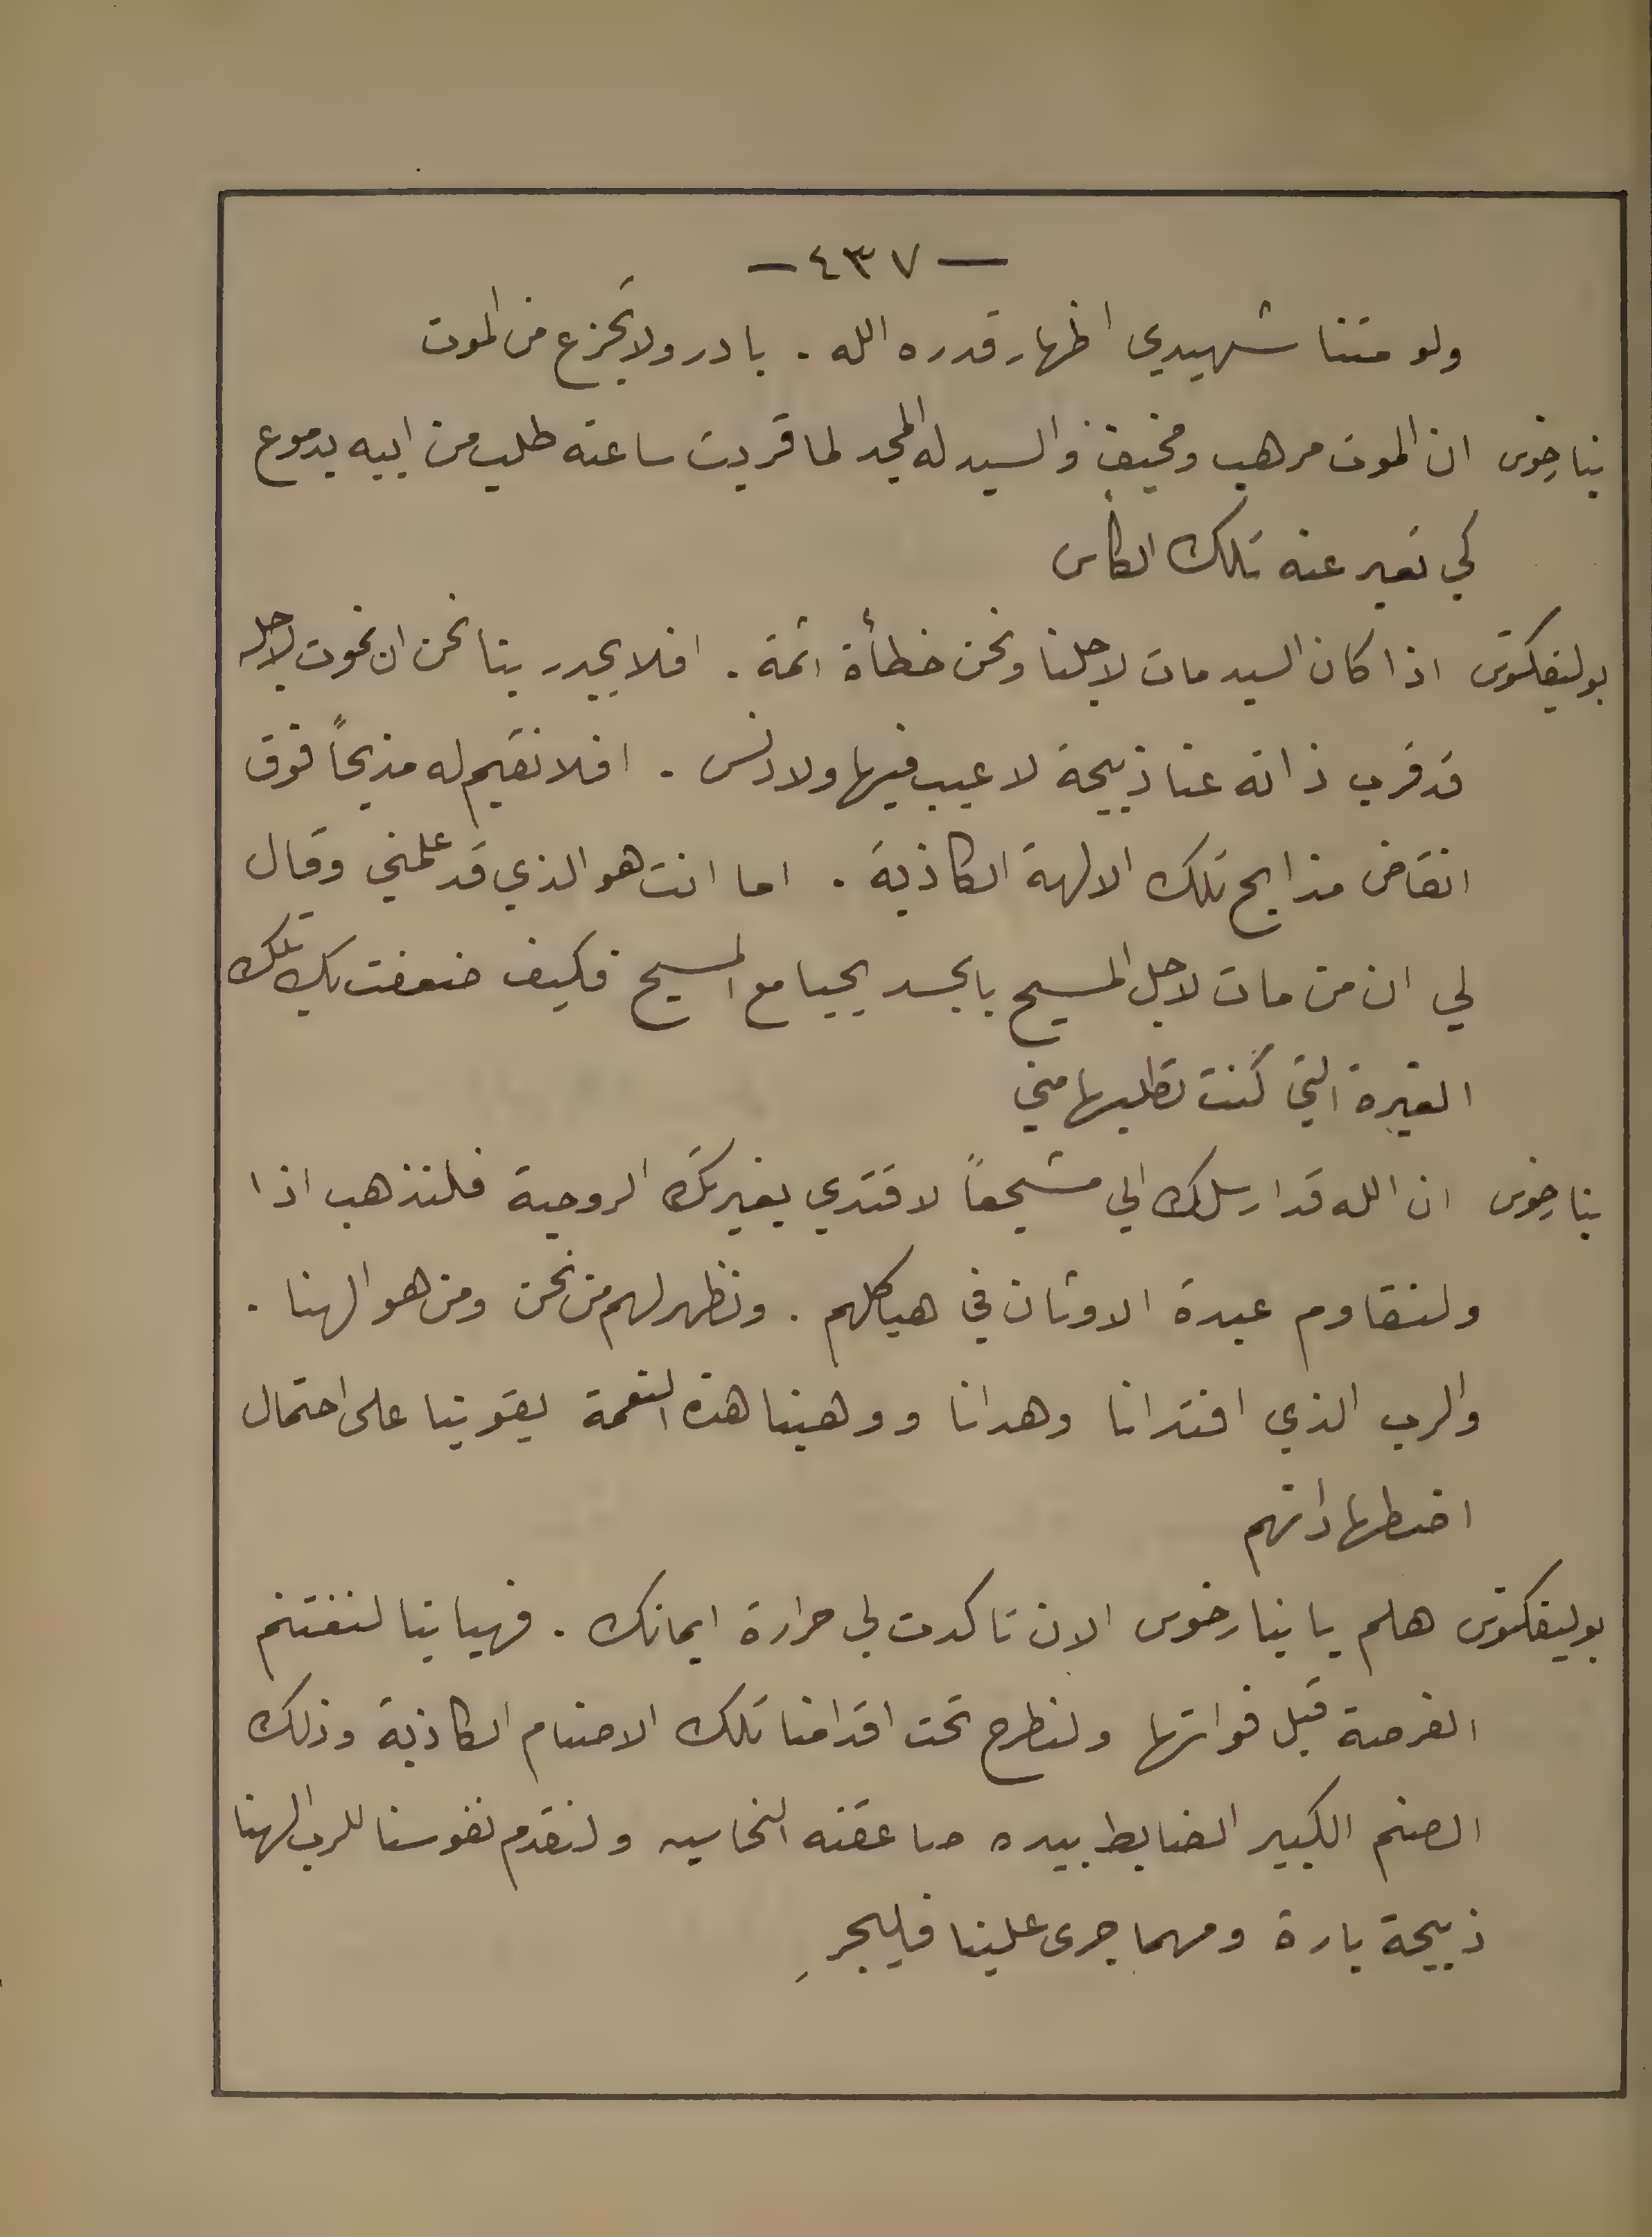 — ٤٣٧ —
ولو متنا شهيدي اظهار قدره الله . بادر ولا تجزع من الموت
نيارخوس ان الموت مرهب ومخيف والسيد له المجد لما قربت ساعته طلب من ابيه بدموع
كي تعبر عنه تلك الكأس
بوليفكتوس اذا كان السيد مات لاجلنا ونحن خطأة اثمة . افلا يجدر بنا نحن ان نموت لاجله
قد قرب ذاته عنا ذبيحة لا عيب فيها ولا دنس . افلا نقيم له مذبحاً فوق
انقاض مذابح تلك الالهة الكاذبة . اما انت هو الذي قد علمني وقال
لي ان من مات لاجل المسيح بالجسد يحيا مع المسيح فكيف ضعفت بك تلك
الغيرة التي كنت تطلبها مني
نيارخوس ان الله قد ارسلك الي مشجعاً لاقتدي بغيرتك الروحية فلنذهب اذا
ولنقاوم عبدة الاوثان في هياكلهم . ونظهر لهم من نحن ومن هو الهنا .
والرب الذي افتدانا وهدانا ووهبنا هذه النعمة يقوينا على احتمال
اضطهاداتهم
بوليفكتوس هلم يا نيارخوس الان تاكدت لي حرارة ايمانك . فهيا بنا لنغتنم
الفرصة قبل فواتها ولنطرح تحت اقدامنا تلك الاصنام الكاذبة وذلك
الصنم الكبير الضابط بيده صاعقته النحاسيه ولنقدم نفوسنا للرب الهنا
ذبيحة بارة ومهما جرى علينا فليجرِ